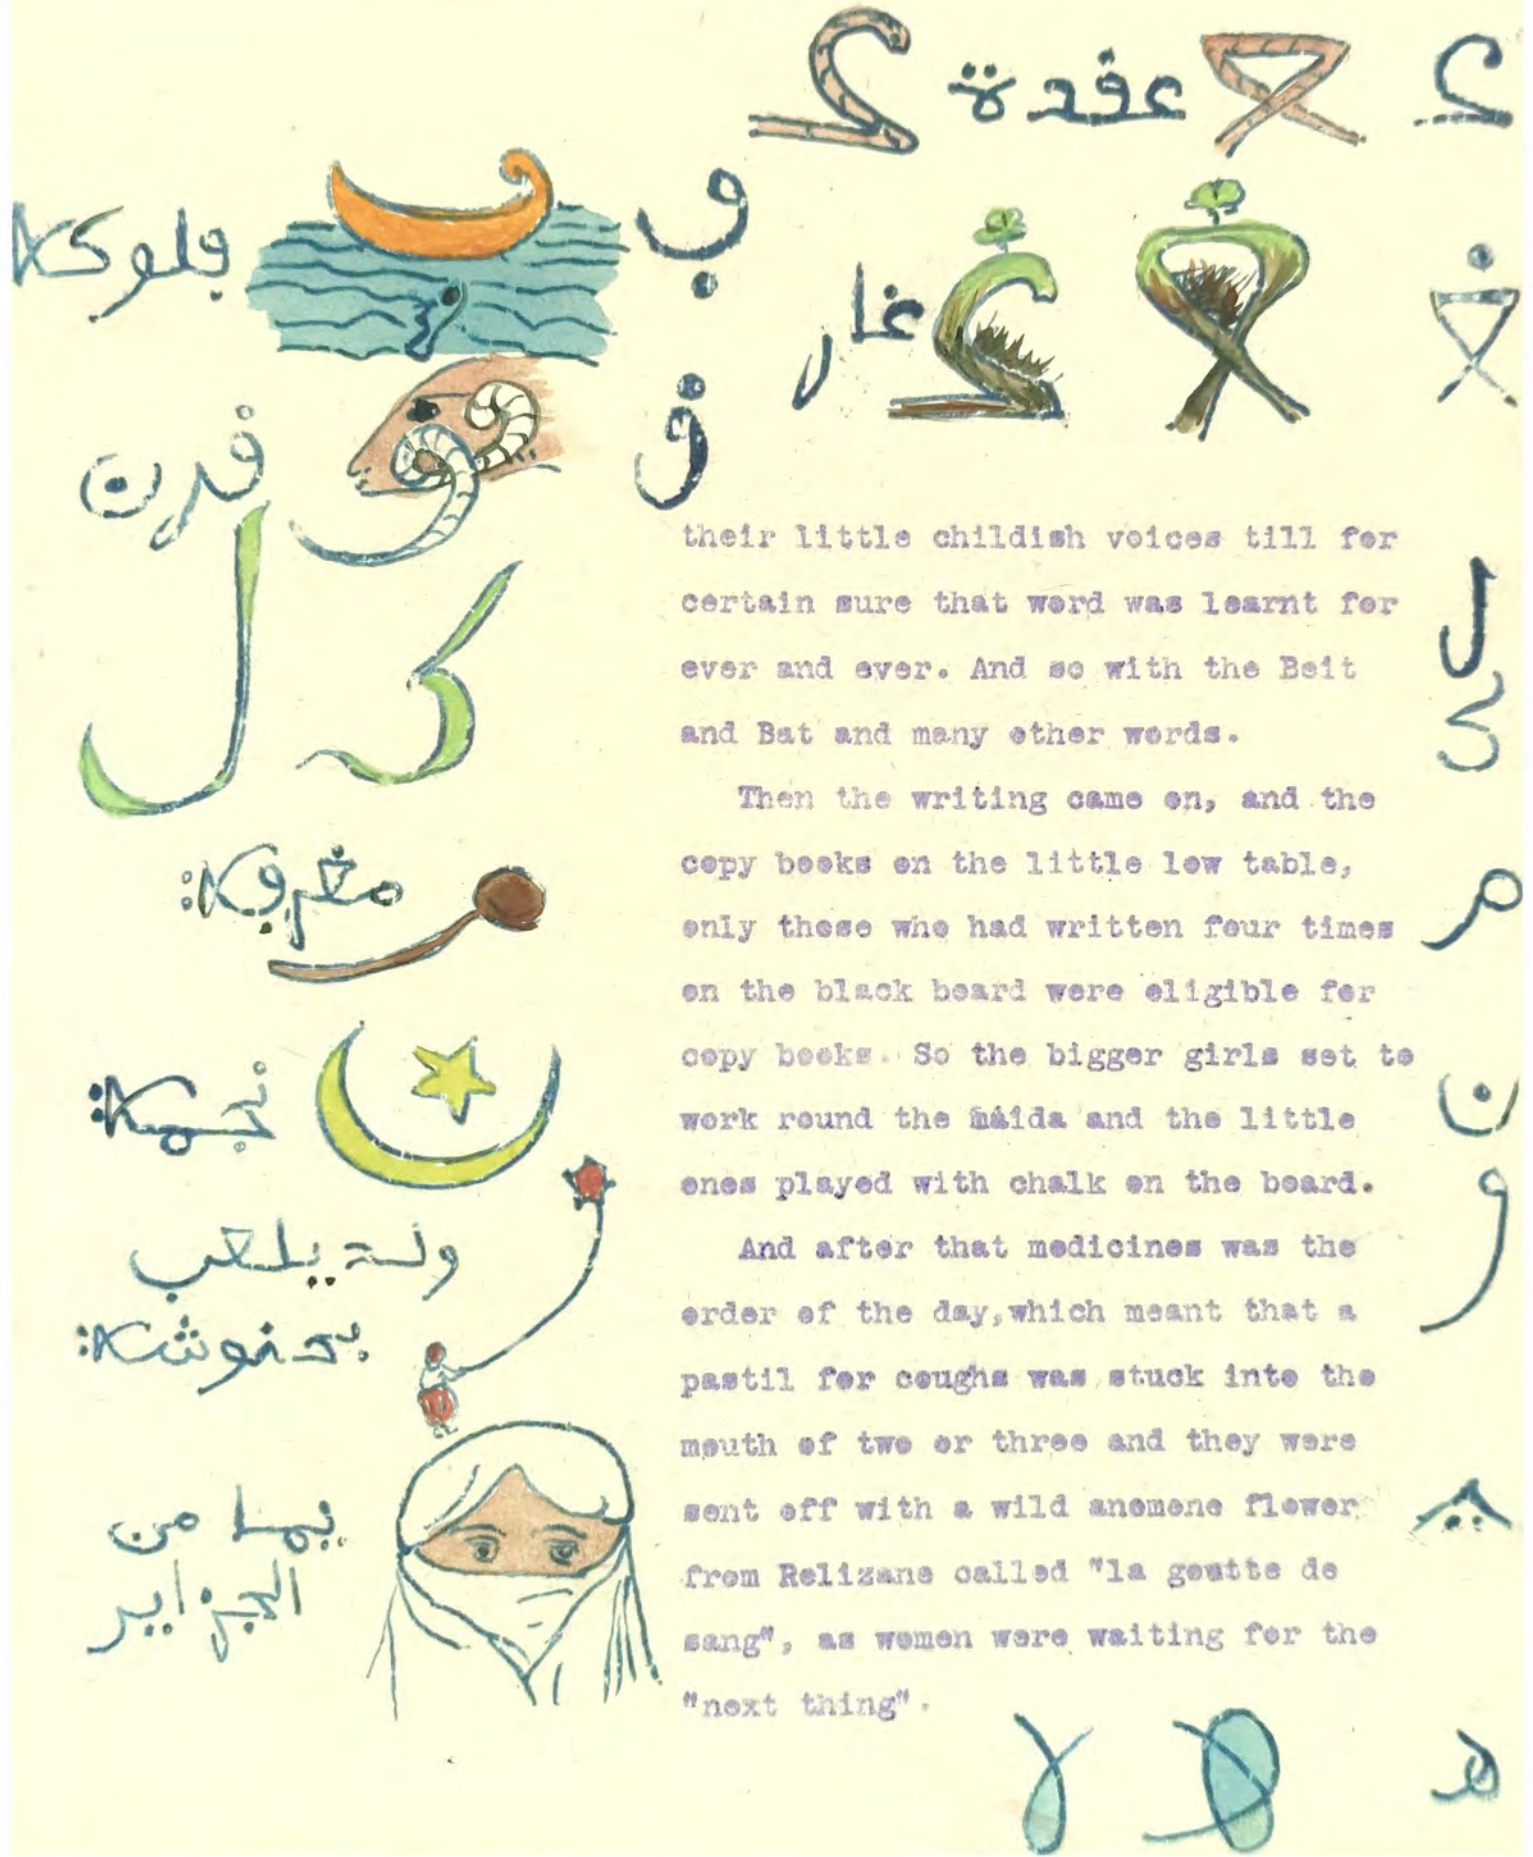 ع عڧدة
ڢلوكه ڢ
غار غ
ڧرن ڧ
their little childish voices till for
certain sure that word was learnt for
ever and ever. And so with the Beit
and Bat and many other words.
Then the writing came on, and the
copy books on the little low table,
only those who had written four times
on the black board were eligible for
copy books. So the bigger girls set to
work round the máida and the little
ones played with chalk on the board.
And after that medicines was the
order of the day,which meant that a
pastil for coughs was stuck into the
mouth of two or three and they were
sent off with a wild anemone flower
from Relizane called "la goutte de
sang", as women were waiting for the
"next thing".
ل
ك
م
ن
و
ه
ك ل
مغرڢة
نجمة
ولد يلعب
يما من
الجزاير